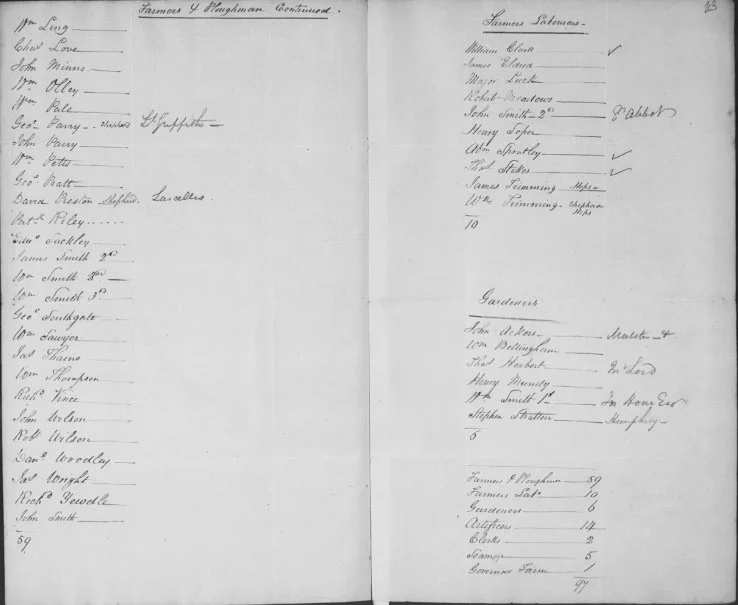 Farmers & Ploughman Continued.
Wm Ling
Chas Love
John Minns
Wm Olley
Wm Pale
Geo. Parry - Shepherd Lt Griffiths
John Parry
Wm Potts
Geo. Pratt
David Preston Shepherd Lascelles
Patk Riley
Edwd Sackley
James Smith 2nd
Wm Smith 2nd
Wm Smith 3d
Geo. Southgate
Wm Sawyer
Jas Thains
Wm Thompson
Richd Vince
John Wilson
Robt Wilson
Danl Woodley
Jas Wright
Richd Yewdle
John Smith
59
23
Farmers Labourers -
William Clark ✓
James Eldred
Major Luck
Robert Meadows
John Smith - 2nd Abbot
Henry Soper
Abm Spratley ✓
Thos Stokes ✓
James Trimming Hops
Wm Trimming - Shepherd Hops
10
Gardeners
John Ackers Malster
Wm Bellingham
Thos Herbert Mr Lord
Henry Mundy
Wm Smith 1st Hone Esq
Stephen Stratton Humphrey
6
Farmers & Ploughman 59
Farmers Labs 10
Gardeners 6
Artificers 14
Clerks 2
Seamen 5
Governors Farm 1
97